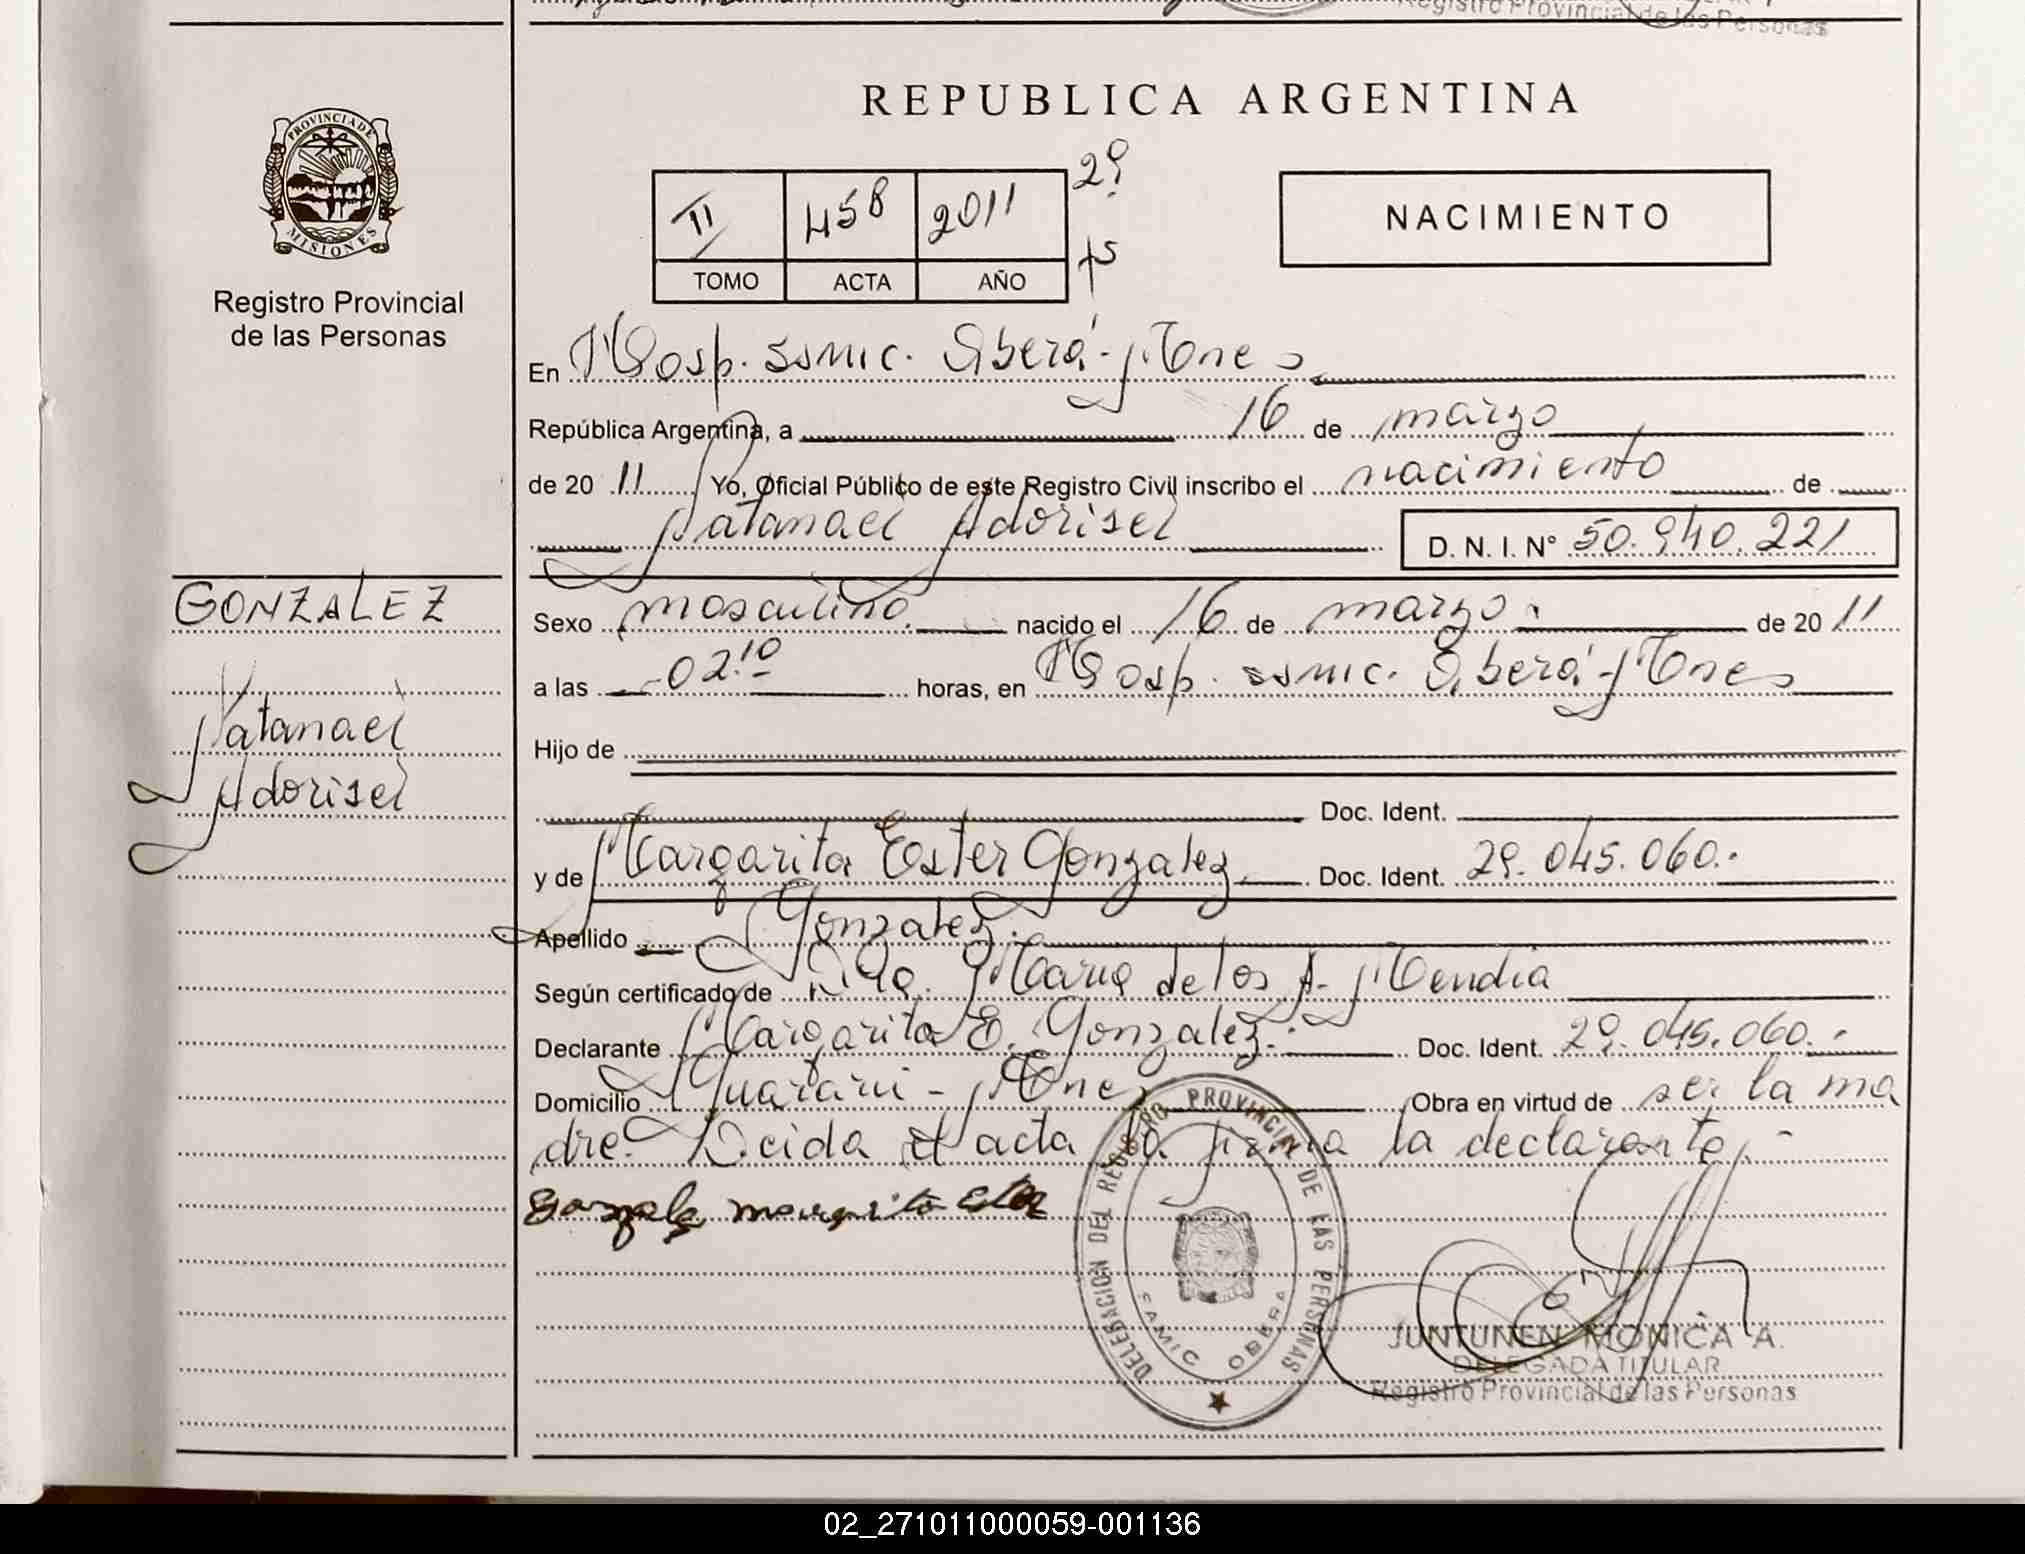 Registro Provincial de las Personas
PROVINCIA DE
MISIONES
Registro Provincial
de las Personas
REPUBLICA ARGENTINA
II 458 2011 2º
TOMO ACTA AÑO
NACIMIENTO
En Hosp. ssmic. Oberá - Mnes
República Argentina, a 16 de marzo
de 20 11 Yo, Oficial Público de este Registro Civil inscribo el nacimiento de
Natanael Adorisel D. N. I. Nº 50.940.221
GONZALEZ
Natanael
Adorisel
Sexo masculino. nacido el 16 de marzo. de 20 11
a las 02.10 horas, en Hosp. ssmic. Oberá - Mnes
Hijo de
Doc. Ident.
y de Margarita Ester Gonzalez Doc. Ident. 29.045.060.-
Apellido Gonzalez.
Según certificado de Maria de los A. Mendia
Declarante Margarita E. Gonzalez.- Doc. Ident. 29.045.060.-
Domicilio Guaraní - Mnes Obra en virtud de ser la ma
dre. Leida el acta la firma la declarante.-
Gonzalez margarita Ester
DELEGACION DEL REGISTRO PROVINCIAL DE LAS PERSONAS
SAMIC OBERA
JUNTUNEN MONICA A.
DELEGADA TITULAR
Registro Provincial de las Personas
02_271011000059-001136